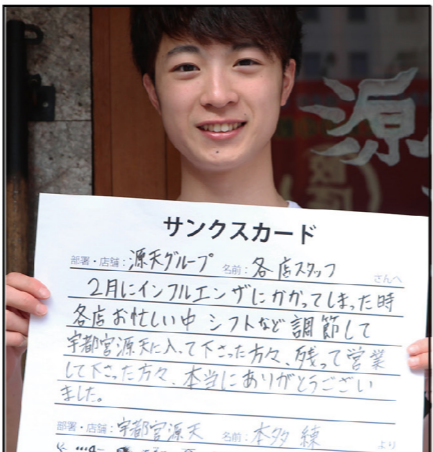 源
サンクスカード
部署・店舗:源天グループ 名前:各店スタッフ さんへ
2月にインフルエンザにかかってしまった時
各店お忙しい中 シフトなど調節して
宇都宮源天に入って下さった方々、残って営業
して下さった方々、本当にありがとうござい
ました。
部署・店舗:宇都宮源天 名前:本多 練 より